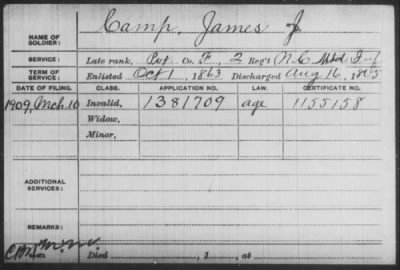 Camp, James J.
NAME OF SOLDIER:
SERVICE: Late rank, Pvt Co. F, 2 Reg't N.C. Mtd Inf
TERM OF SERVICE: Enlisted Oct 1, 1863 Discharged Aug 16, 1865
DATE OF FILING. CLASS. APPLICATION NO. LAW. CERTIFICATE NO.
1909, Mch. 10 Invalid, 1381709 age 1155158
Widow,
Minor,
ADDITIONAL SERVICES:
REMARKS:
Died , 1 , at